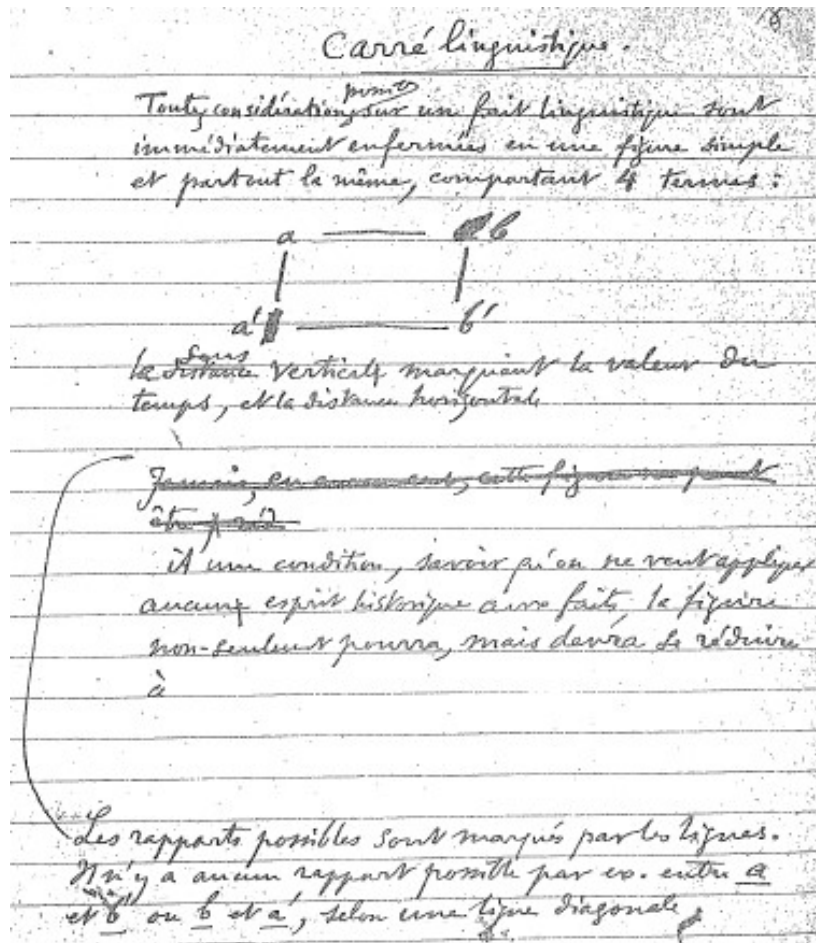 Carré linguistique.
possibles
Toutes considérations sur un fait linguistique sont
immédiatement enfermées en une figure simple
et partout la même, comportant 4 termes :
a b
a' b'
Sens
la distance verticale marquant la valeur du
temps, et la distance horizontale
Jamais, en aucun cas, cette figure ne peut
être réd
A une condition, savoir qu'on ne veut appliquer
aucun esprit historique aux faits, la figure
non-seulement pourra, mais devra se réduire
à
Les rapports possibles sont marqués par les lignes.
Il n'y a aucun rapport possible par ex. entre a
et b' ou b et a', selon une ligne diagonale